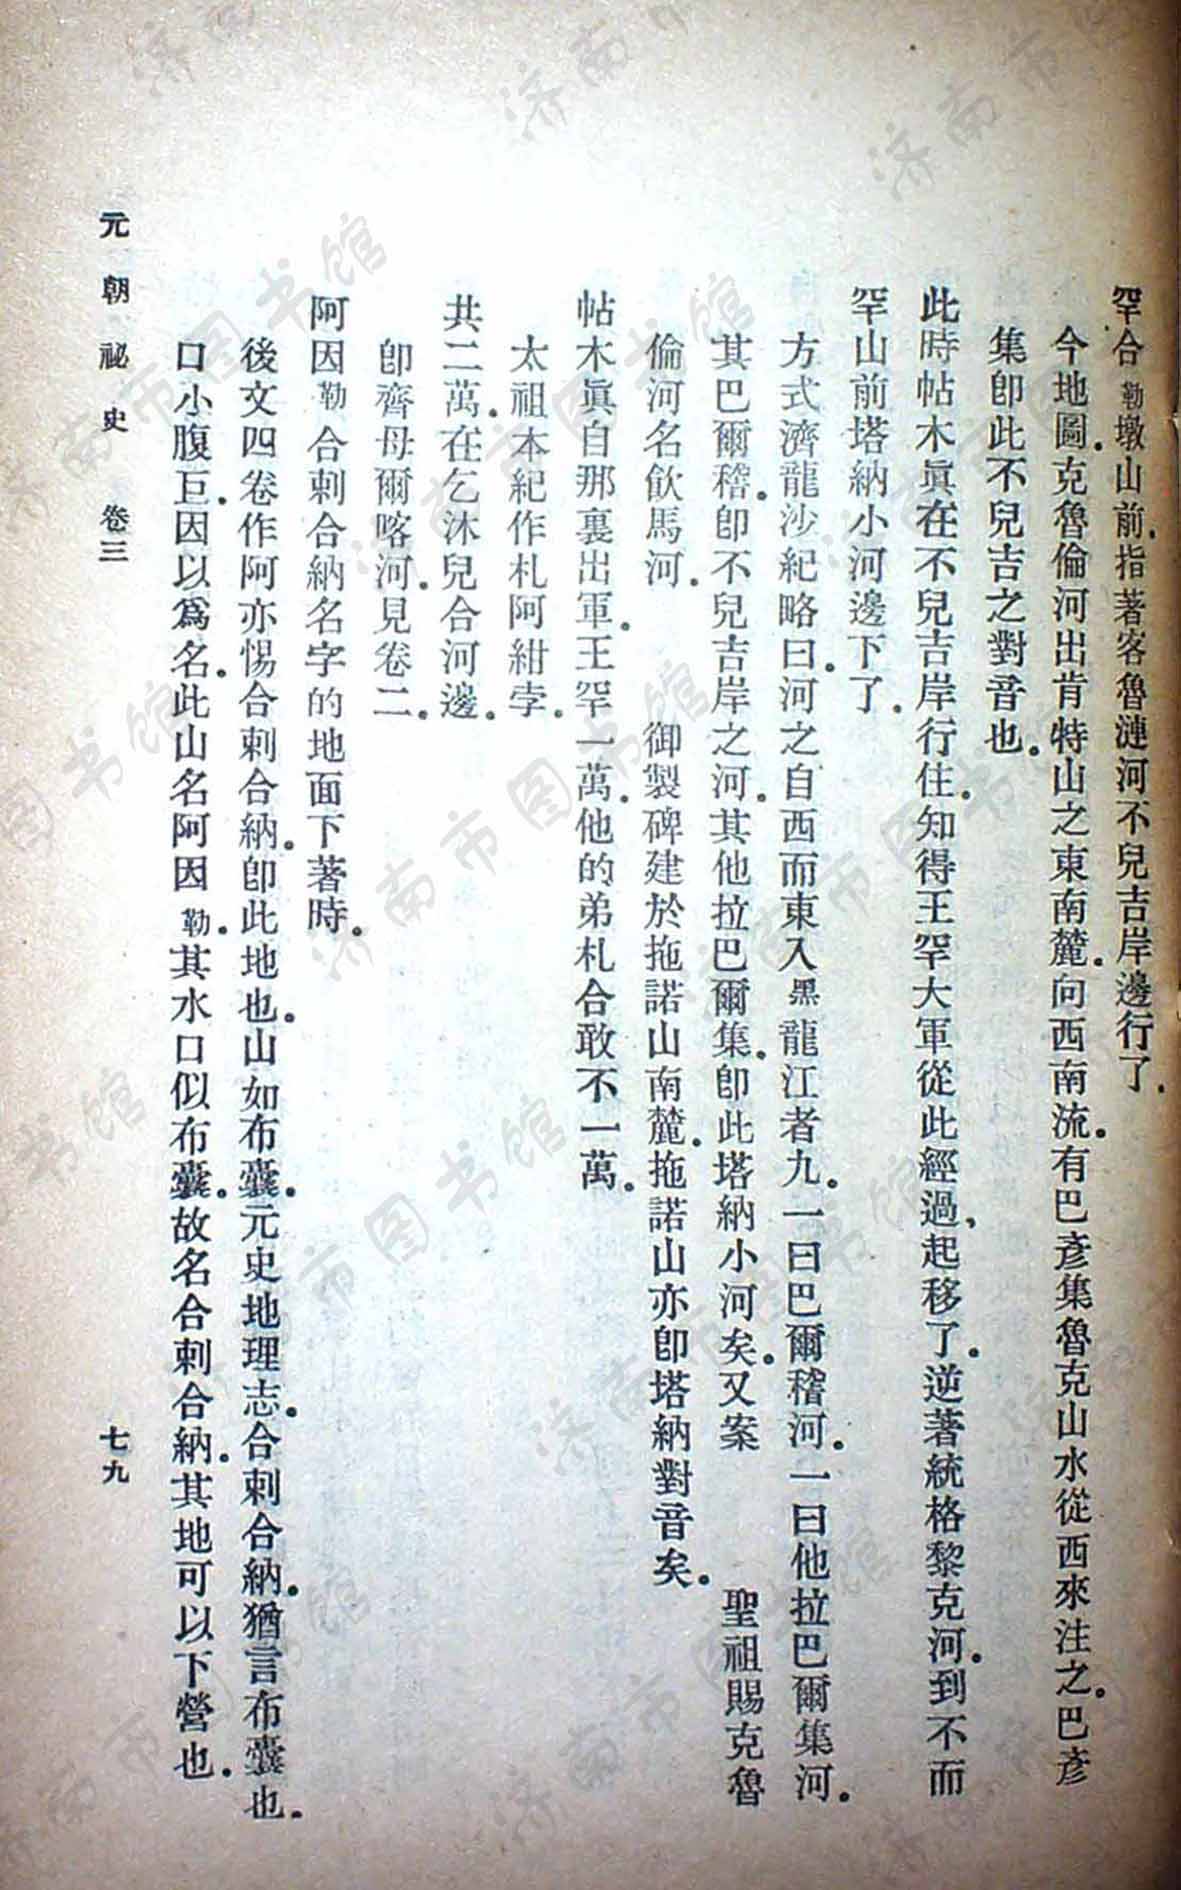 罕合勒墩山前指著客魯漣河不兒吉岸邊行了.
今地圖.克魯倫河出肯特山之東南麓.向西南流.有巴彥集魯克山水從西來注之.巴彥
集卽此不兒吉之對音也.
此時帖木眞在不兒吉岸行住.知得王罕大軍從此經過、起移了.逆著統格黎克河.到不而
罕山前塔納小河邊下了.
方式濟龍沙紀略曰.河之自西而東入黑龍江者九.一曰巴爾稽河.一曰他拉巴爾集河.
其巴爾稽.卽不兒吉岸之河.其他拉巴爾集.卽此塔納小河矣.又案　聖祖賜克魯
倫河名飮馬河.　御製碑建於拖諾山南麓.拖諾山亦卽塔納對音矣.
帖木眞自那裏出軍.王罕一萬.他的弟札合敢不一萬.
太祖本紀作札阿紺孛.
共二萬.在乞沐兒合河邊.
卽齊母爾喀河.見卷二.
阿因勒合剌合納名字的地面下著時.
後文四卷作阿亦惕合剌合納.卽此地也.山如布囊.元史地理志.合剌合納.猶言布囊也.
口小腹巨.因以爲名.此山名阿因勒.其水口似布囊.故名合剌合納.其地可以下營也.
元朝祕史　卷三　七九
济南市图书馆